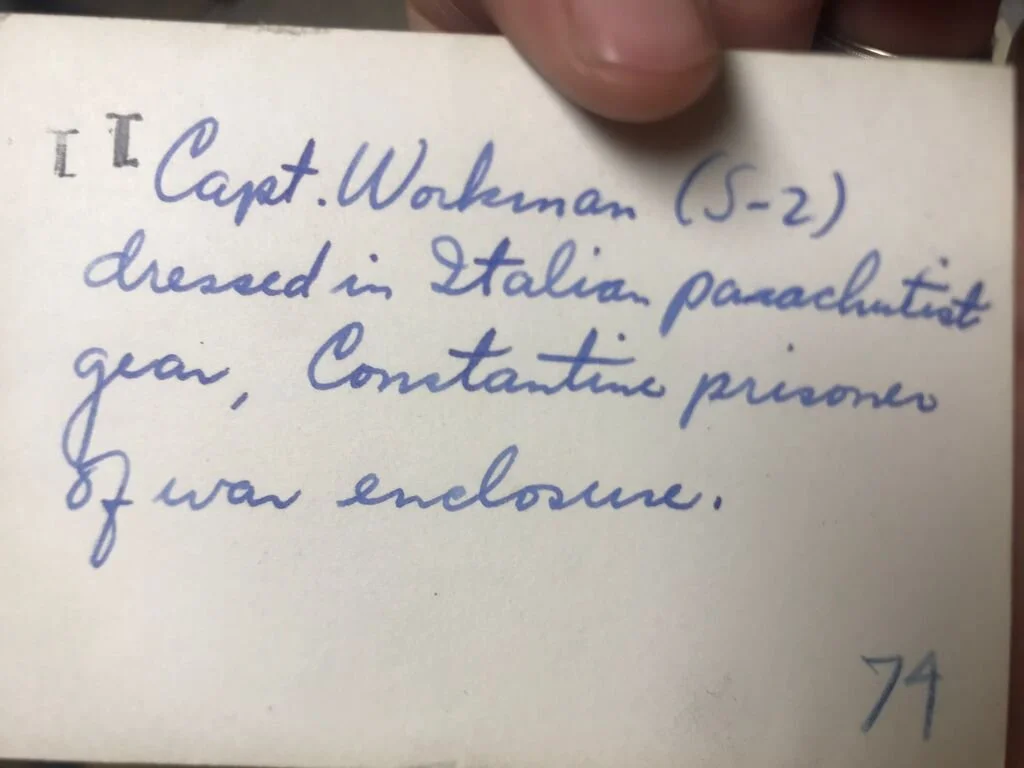 I I Capt. Workman (S-2)
dressed in Italian parachutist
gear, Constantine prisoner
of war enclosure.
74